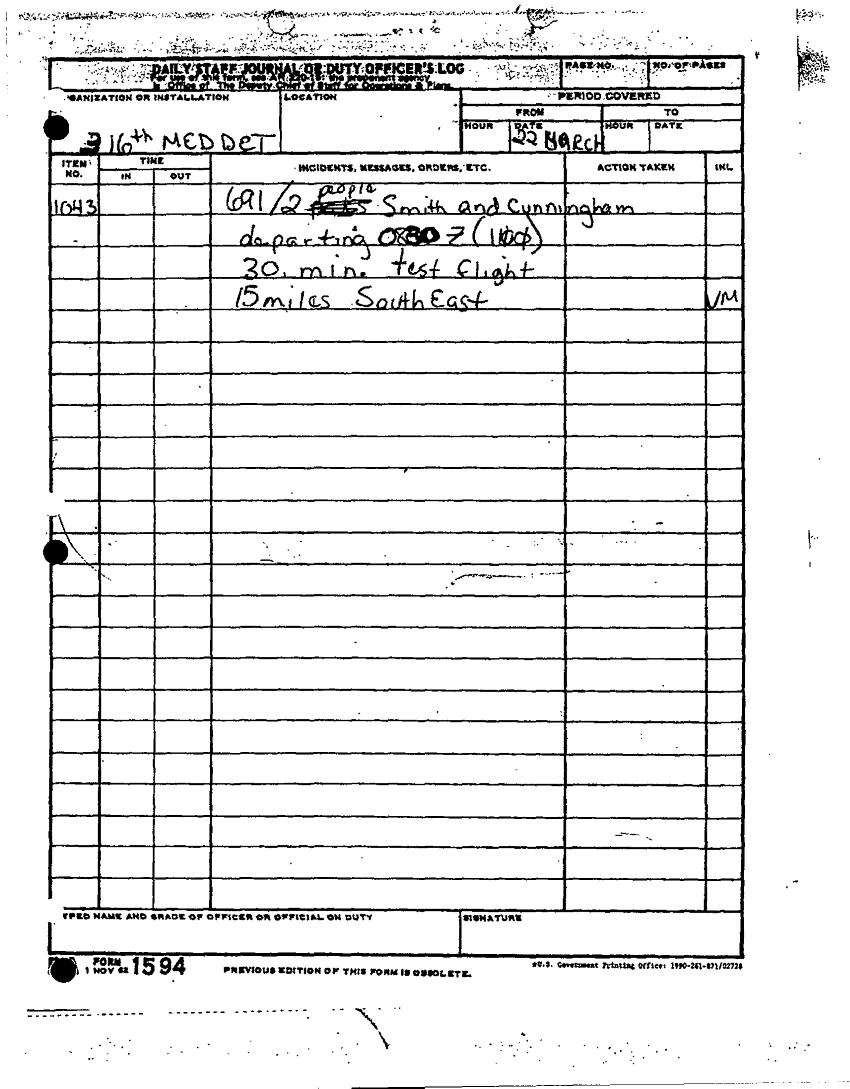 DAILY STAFF JOURNAL OR DUTY OFFICER'S LOG
For use of this form, see AR 220-15; the proponent agency
is Office of The Deputy Chief of Staff for Operations & Plans.
PAGE NO.
NO. OF PAGES
GANIZATION OR INSTALLATION
316th MED DET
LOCATION
PERIOD COVERED
FROM
TO
HOUR
DATE
HOUR
DATE
22 MARCH
ITEM NO.
TIME
IN
OUT
INCIDENTS, MESSAGES, ORDERS, ETC.
ACTION TAKEN
INL
1043
691/2 people Smith and Cunningham
departing 0830 Z (1100)
30. min. test flight
15 miles South East
VM
YPED NAME AND GRADE OF OFFICER OR OFFICIAL ON DUTY
SIGNATURE
FORM
1 NOV 62 1594
PREVIOUS EDITION OF THIS FORM IS OBSOLETE.
U.S. Government Printing Office: 1990-261-871/02728